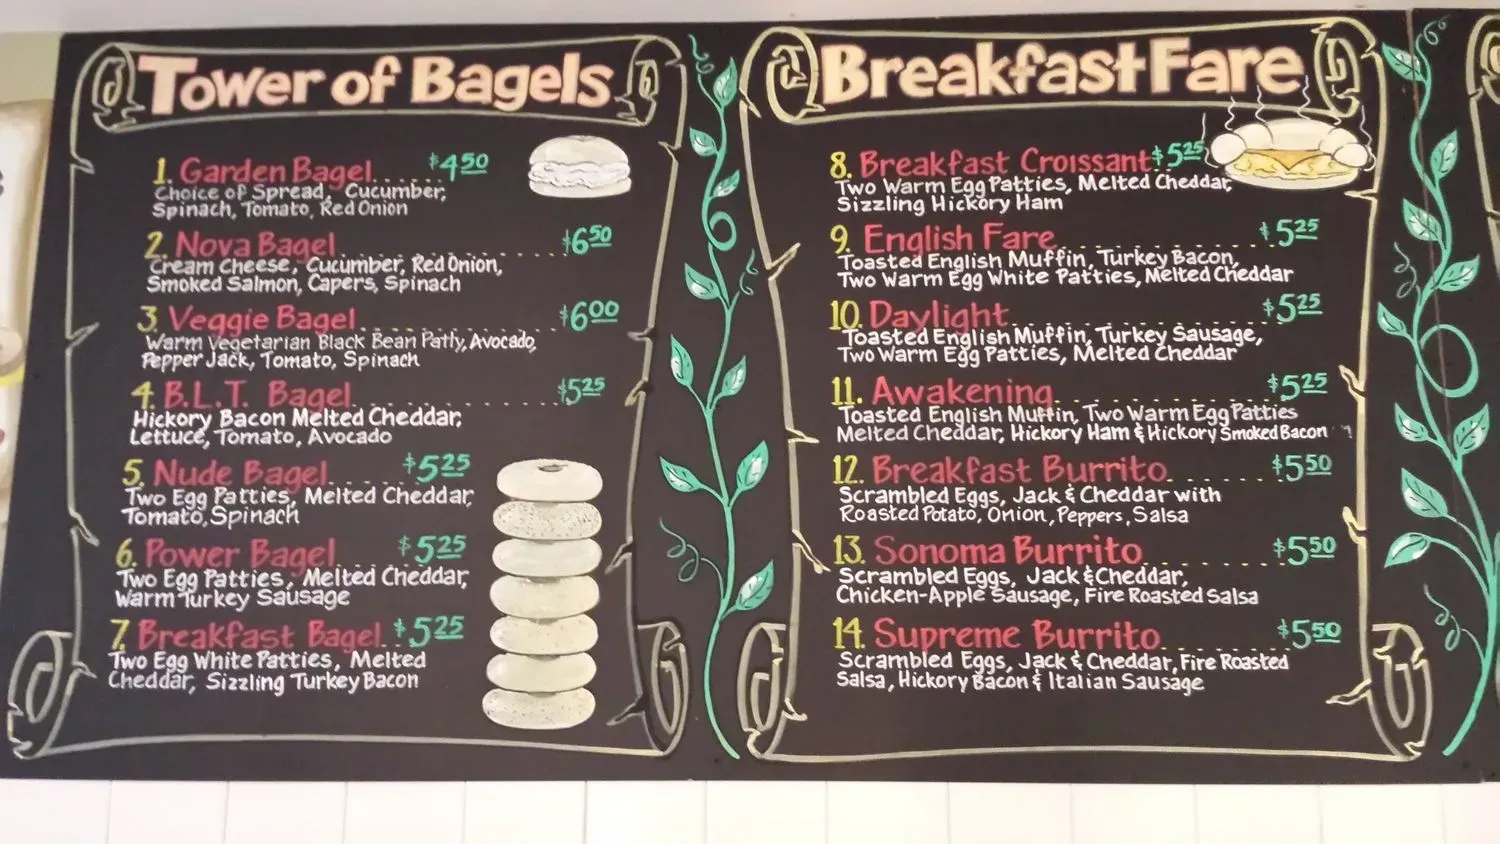 Tower of Bagels
1. Garden Bagel..... $4 50
Choice of Spread, Cucumber,
Spinach, Tomato, Red Onion
2. Nova Bagel.................... $6 50
Cream Cheese, Cucumber, Red Onion,
Smoked Salmon, Capers, Spinach
3. Veggie Bagel.................. $6 00
Warm Vegetarian Black Bean Patty, Avocado,
Pepper Jack, Tomato, Spinach
4. B.L.T. Bagel.................. $5 25
Hickory Bacon Melted Cheddar,
Lettuce, Tomato, Avocado
5. Nude Bagel...... $5 25
Two Egg Patties, Melted Cheddar,
Tomato, Spinach
6. Power Bagel..... $5 25
Two Egg Patties, Melted Cheddar,
Warm Turkey Sausage
7. Breakfast Bagel.. $5 25
Two Egg White Patties, Melted
Cheddar, Sizzling Turkey Bacon
Breakfast Fare
8. Breakfast Croissant $5 25
Two Warm Egg Patties, Melted Cheddar,
Sizzling Hickory Ham
9. English Fare................ $5 25
Toasted English Muffin, Turkey Bacon,
Two Warm Egg White Patties, Melted Cheddar
10. Daylight..................... $5 25
Toasted English Muffin, Turkey Sausage,
Two Warm Egg Patties, Melted Cheddar
11. Awakening.................. $5 25
Toasted English Muffin, Two Warm Egg Patties
Melted Cheddar, Hickory Ham & Hickory Smoked Bacon
12. Breakfast Burrito........ $5 50
Scrambled Eggs, Jack & Cheddar with
Roasted Potato, Onion, Peppers, Salsa
13. Sonoma Burrito.......... $5 50
Scrambled Eggs, Jack & Cheddar,
Chicken-Apple Sausage, Fire Roasted Salsa
14. Supreme Burrito......... $5 50
Scrambled Eggs, Jack & Cheddar, Fire Roasted
Salsa, Hickory Bacon & Italian Sausage